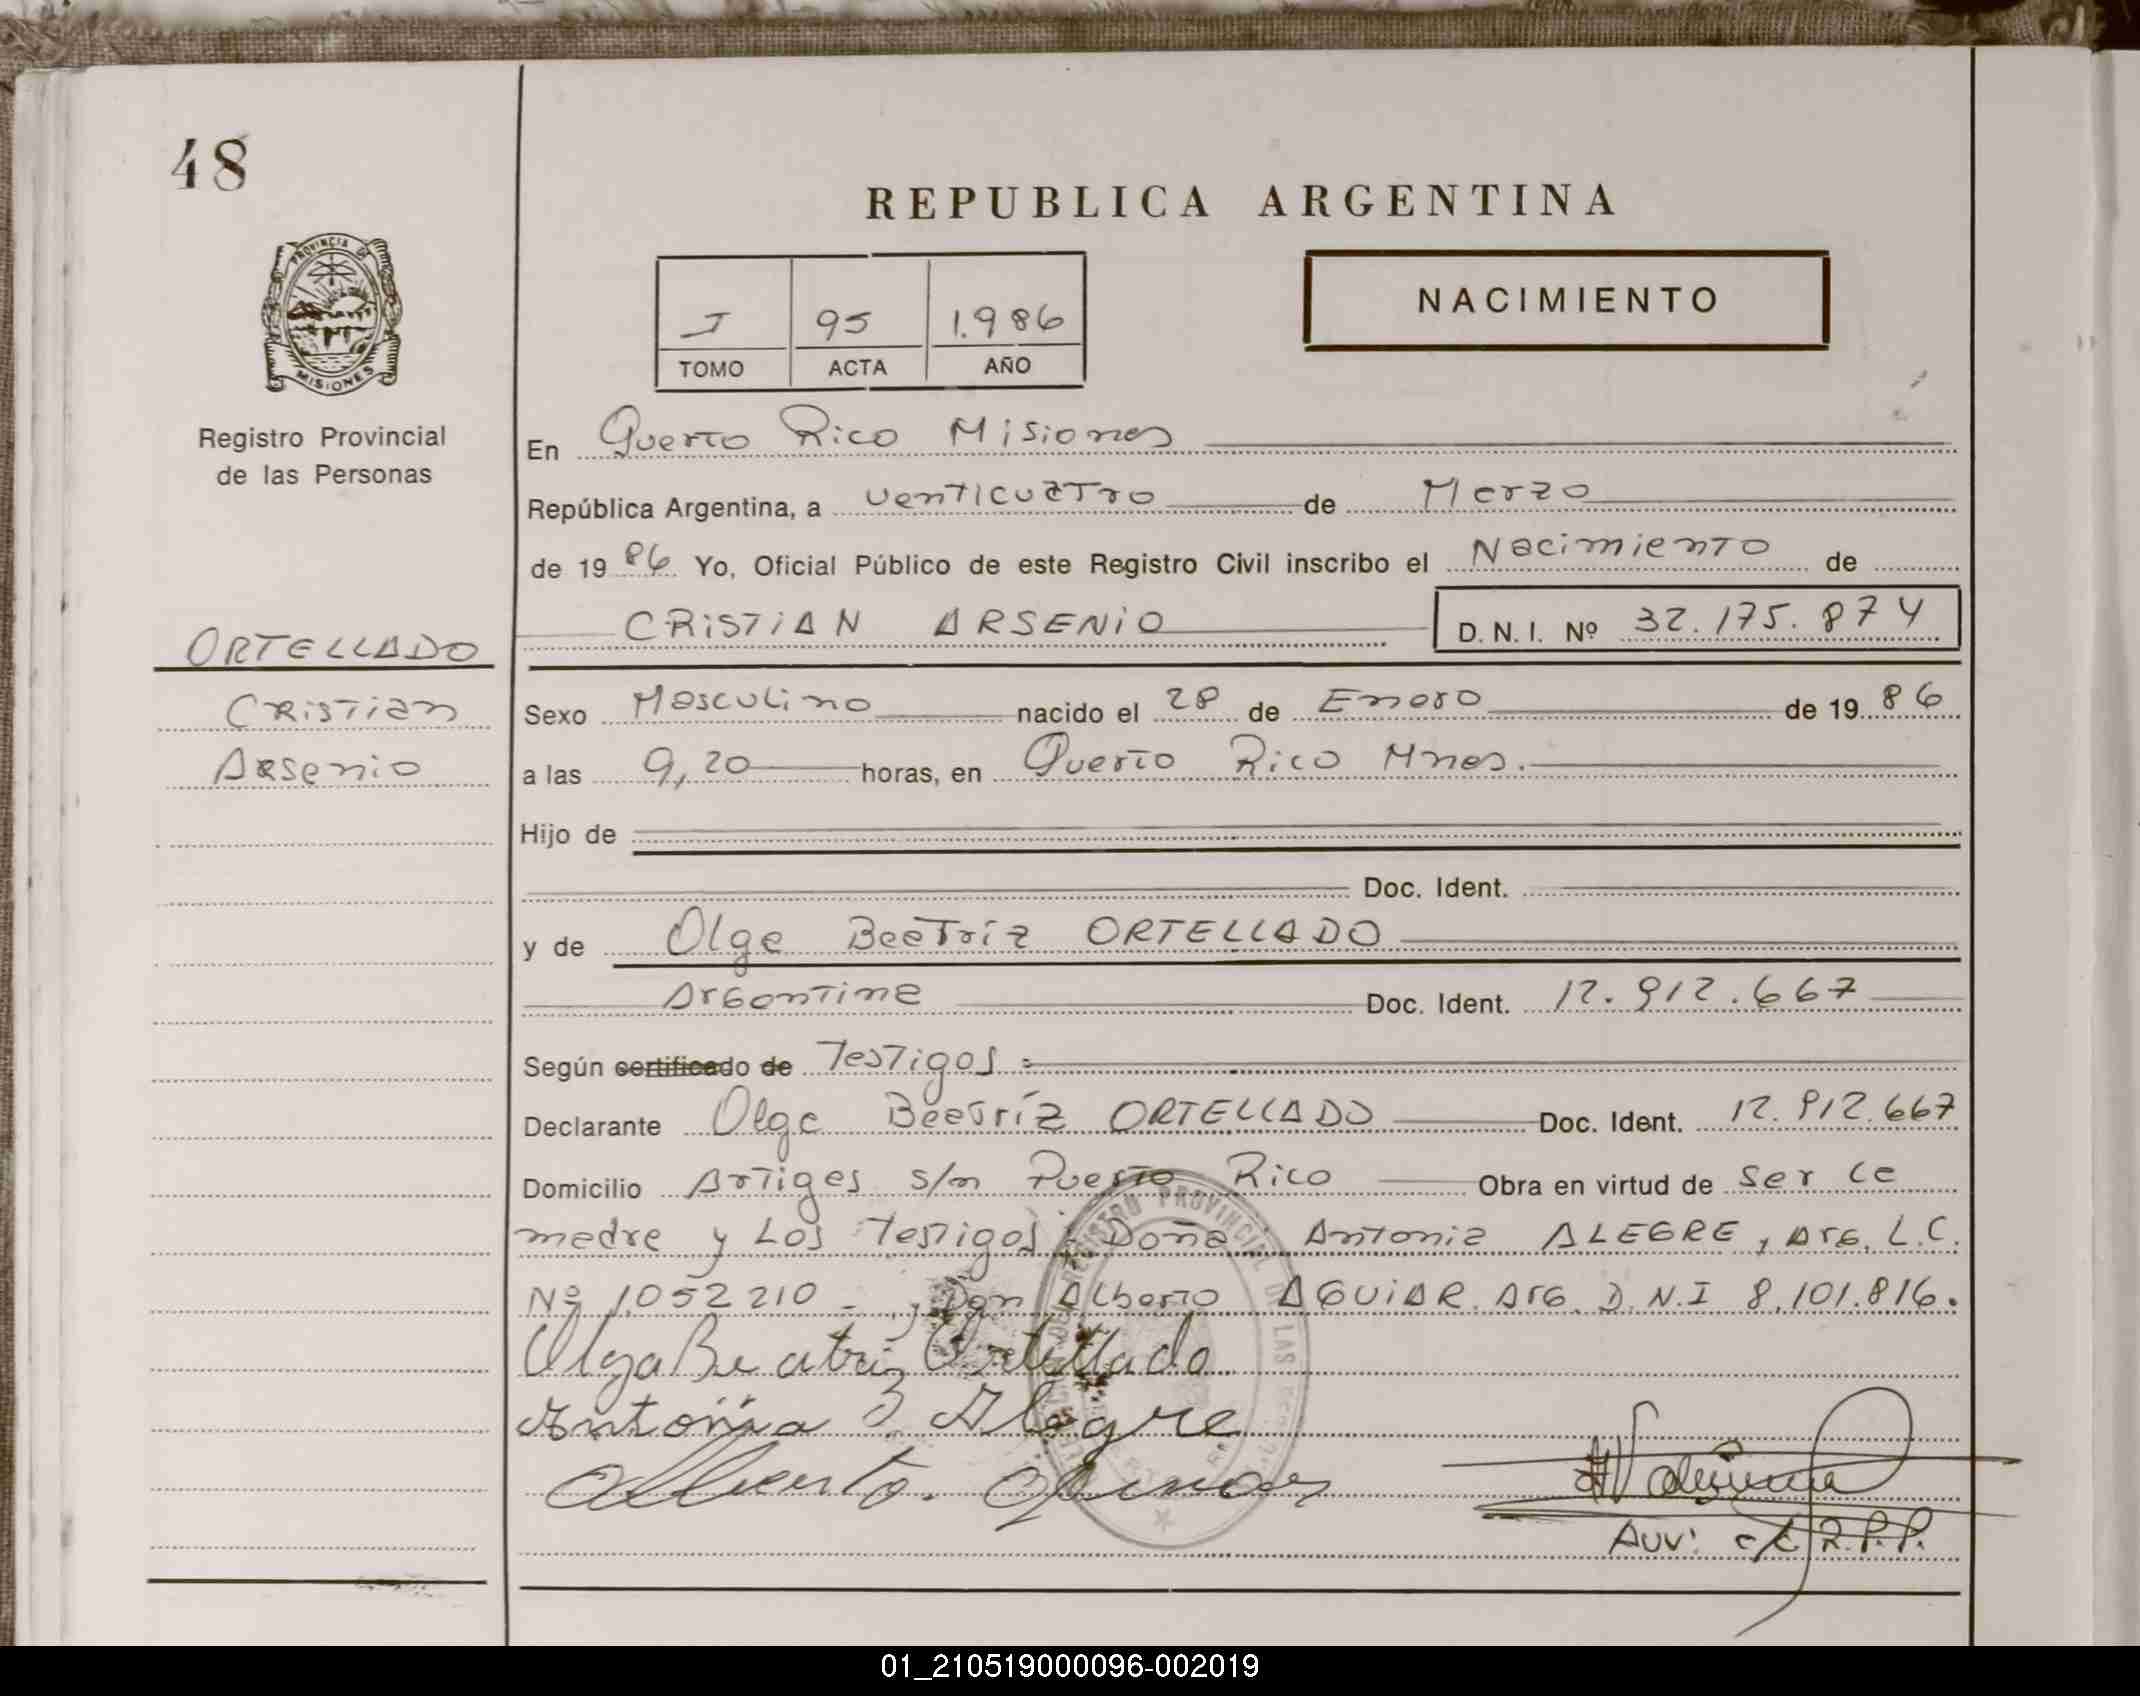 48
REPUBLICA ARGENTINA
PROVINCIA DE
MISIONES
Registro Provincial
de las Personas
I 95 1.986
TOMO ACTA AÑO
NACIMIENTO
En Puerto Rico Misiones
República Argentina, a venticuatro de Marzo
de 19 86 Yo, Oficial Público de este Registro Civil inscribo el Nacimiento de
CRISTIAN ARSENIO D. N. I. Nº 32.175.874
ORTELLADO
Cristian
Arsenio
Sexo Masculino nacido el 28 de Enero de 19 86
a las 9,20 horas, en Puerto Rico Mnes.
Hijo de
Doc. Ident.
y de Olga Beatriz ORTELLADO
Argentina Doc. Ident. 12.912.667
Según certificado de Testigos :
Declarante Olga Beatríz ORTELLADO Doc. Ident. 12.912.667
Domicilio Artigas s/n Puerto Rico Obra en virtud de ser la
madre y Los Testigos : Doña Antonia ALEGRE, Arg. L.C.
Nº 1.052210 - , Don Alberto AGUIAR. Arg. D.N.I 8.101.816.
Olga Beatriz Ortellado
Antonia Alegre
Alberto. Aguiar
REGISTRO PROVINCIAL DE LAS
Auv: R.P.P.
01_210519000096-002019